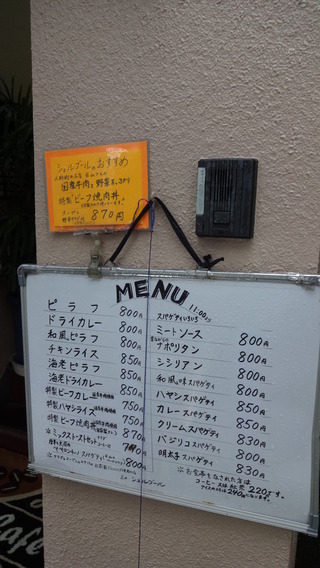 シェルブールのおすすめ
国産牛肉と野菜たっぷり
特製ビーフ焼肉丼
870円
MENU
11:00より
ピラフ 800円
ドライカレー 800円
和風ピラフ 800円
チキンライス 850円
海老ピラフ 850円
海老ドライカレー 850円
特製ビーフカレー 750円
特製ハヤシライス 750円
特製ビーフ焼肉丼 870円
※ミックストーストセット
800円
スパゲティいろいろ
ミートソース 800円
ナポリタン 800円
シシリアン 800円
和風スパゲティ 800円
ハヤシスパゲティ 850円
カレースパゲティ 850円
クリームスパゲティ 830円
バジリコスパゲティ 800円
明太子スパゲティ 830円
※お食事をなされた方は
コーヒー・紅茶 220円です。
アイスの方は240円になります。
シェルブール
Cafe